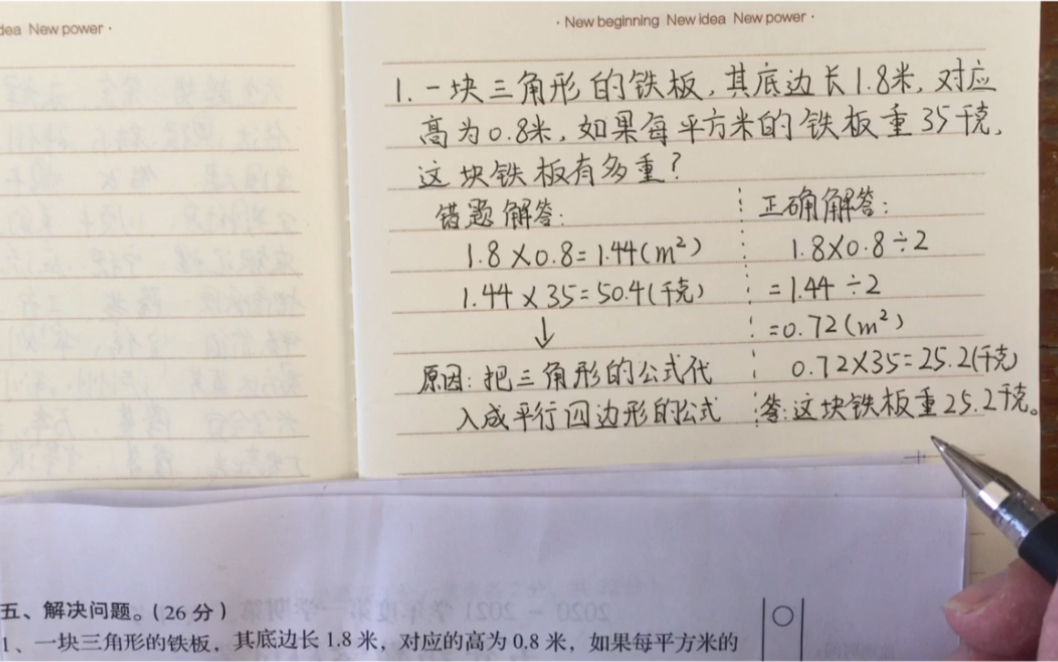 dea New power ·
· New beginning New idea New power ·
1. 一块三角形的铁板,其底边长1.8米,对应
高为0.8米,如果每平方米的铁板重35千克,
这块铁板有多重?
错题解答:
1.8×0.8=1.44(m²)
1.44×35=50.4(千克)
↓
原因:把三角形的公式代
入成平行四边形的公式
正确解答:
1.8×0.8÷2
=1.44÷2
=0.72(m²)
0.72×35=25.2(千克)
答:这块铁板重25.2千克。
五、解决问题。(26分)
1、一块三角形的铁板,其底边长1.8米,对应的高为0.8米,如果每平方米的